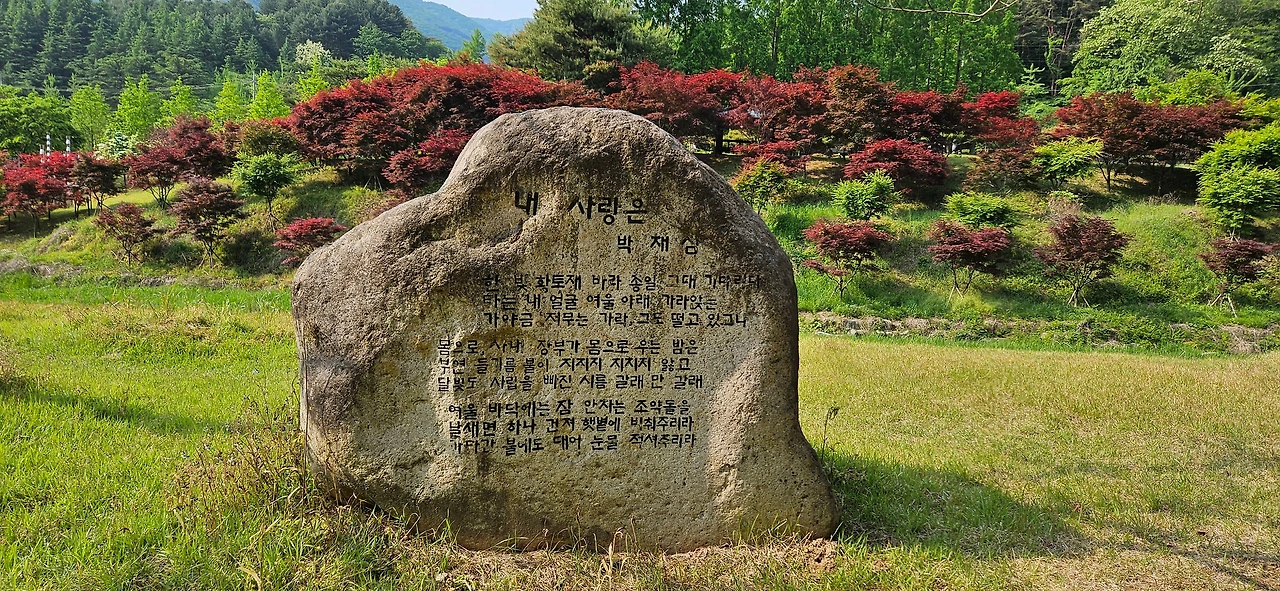 내 사랑은
박 재 삼
한 빛 황토재 바라 종일 그대 기다리다
타는 내 얼굴 여울 아래 가라앉는
가야금 저무는 가락, 그도 떨고 있고나
몸으로, 사내 장부가 몸으로 우는 밤은
부연 들기름 불이 지지지 지지지 앓고
달빛도 사립을 빠진 시름 갈래 만 갈래
여울 바닥에는 잠 안자는 조약돌을
날새면 하나 건져 햇볕에 비춰주리라
가다간 볼에도 대어 눈물 적셔주리라